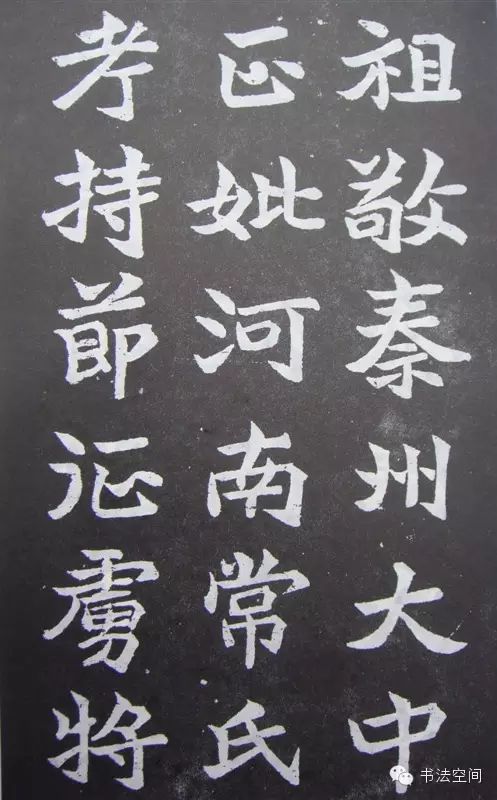 祖敬秦州大中
正妣河南常氏
考持節征虜將
书法空间